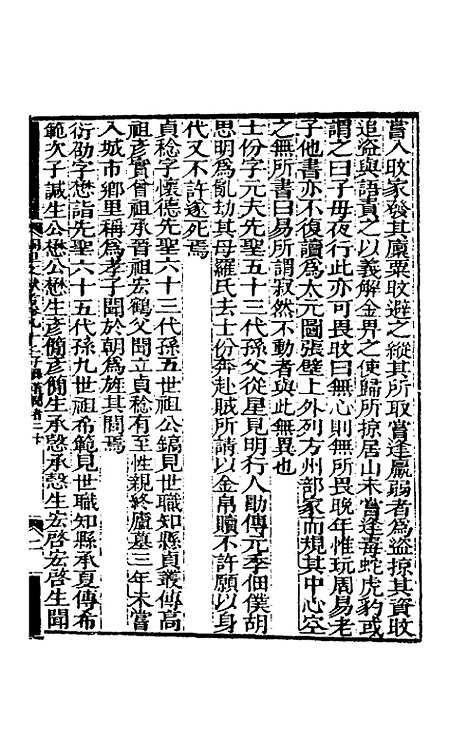 嘗入旼家發其廩粟旼避之縱其所取嘗逢羸弱者為盜掠其資旼
追盜與語責之以義解金畀之使歸所掠居山未嘗逢毒蛇虎豹或
謂之曰子毋夜行此亦可畏旼曰無心則無所畏晚年惟玩周易老
子他書亦不復讀為太元圖張壁上外列方州部家而規其中心空
之無所書曰易所謂寂然不動者與此無異也
士份字元夫先聖五十三代孫父從星見明行人勛傳元季佃僕胡
思明為亂劫其母羅氏去士份奔赴賊所請以金帛贖不許願以身
代又不許遂死焉
貞稔字懷德先聖六十三代孫五世祖公鎬見世職知縣貞叢傳高
祖彥賓曾祖承晉祖宏鶴父聞立貞稔有至性親終廬墓三年未嘗
入城市鄉里稱為孝子聞於朝為旌其閭焉
衍劭字懋詣先聖六十五代孫九世祖希範見世職知縣承夏傳希
範次子諴生公懋公懋生彥簡彥簡生承愨承愨生宏啓宏啓生聞